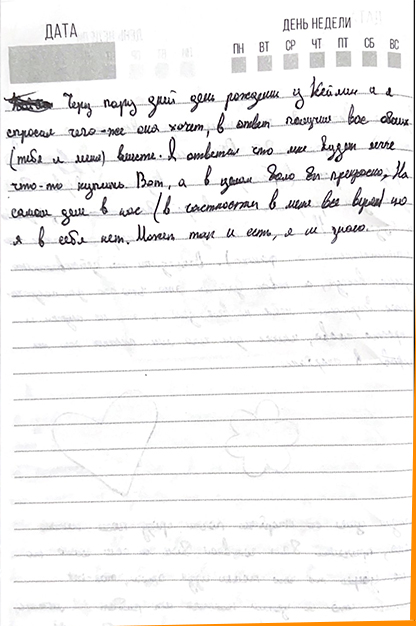 ДАТА
ДЕНЬ НЕДЕЛИ
ПН ВТ СР ЧТ ПТ СБ ВС
Через пару дней день рождения у Кейлин а я
спросил чего-же она хочет, в ответ получил вас обоих
(тебя и меня) вместе. Я ответил что мне будет легче
что-то купить. Вот, а в целом было бы прекрасно. На
самом деле в нас (в частности в меня все верят) но
я в себя нет. Может так и есть, я не знаю.